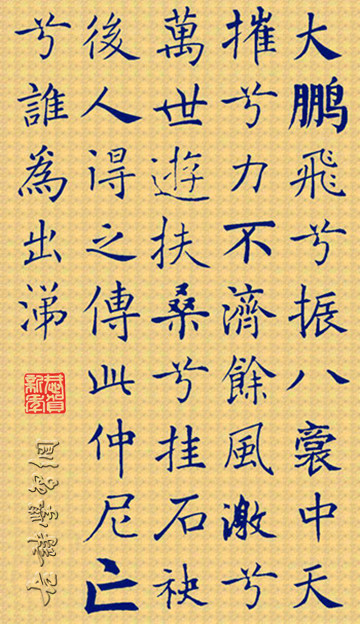 大鵬飛兮振八裔中天
摧兮力不濟餘風激兮
萬世遊扶桑兮挂石袂
後人得之傳此仲尼亡
兮誰為出涕
恭賀新年